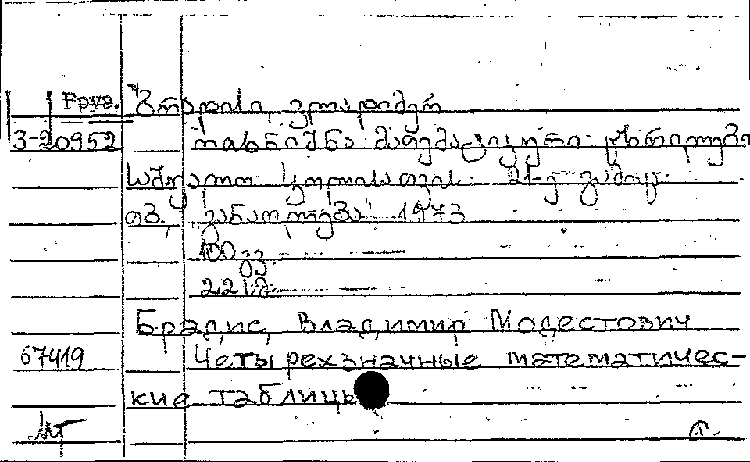 Груз. ბრადისი, ვლადიმერ
3-20952 ოთხნიშნა მათემატიკური ცხრილები
საშუალო სკოლისათვის. 21-ე გამოც.
თბ., "განათლება" 1973
100 გვ.
221 გ.
Брадис, Владимир Модестович
67419 Четырехзначные математичес-
кие таблицы